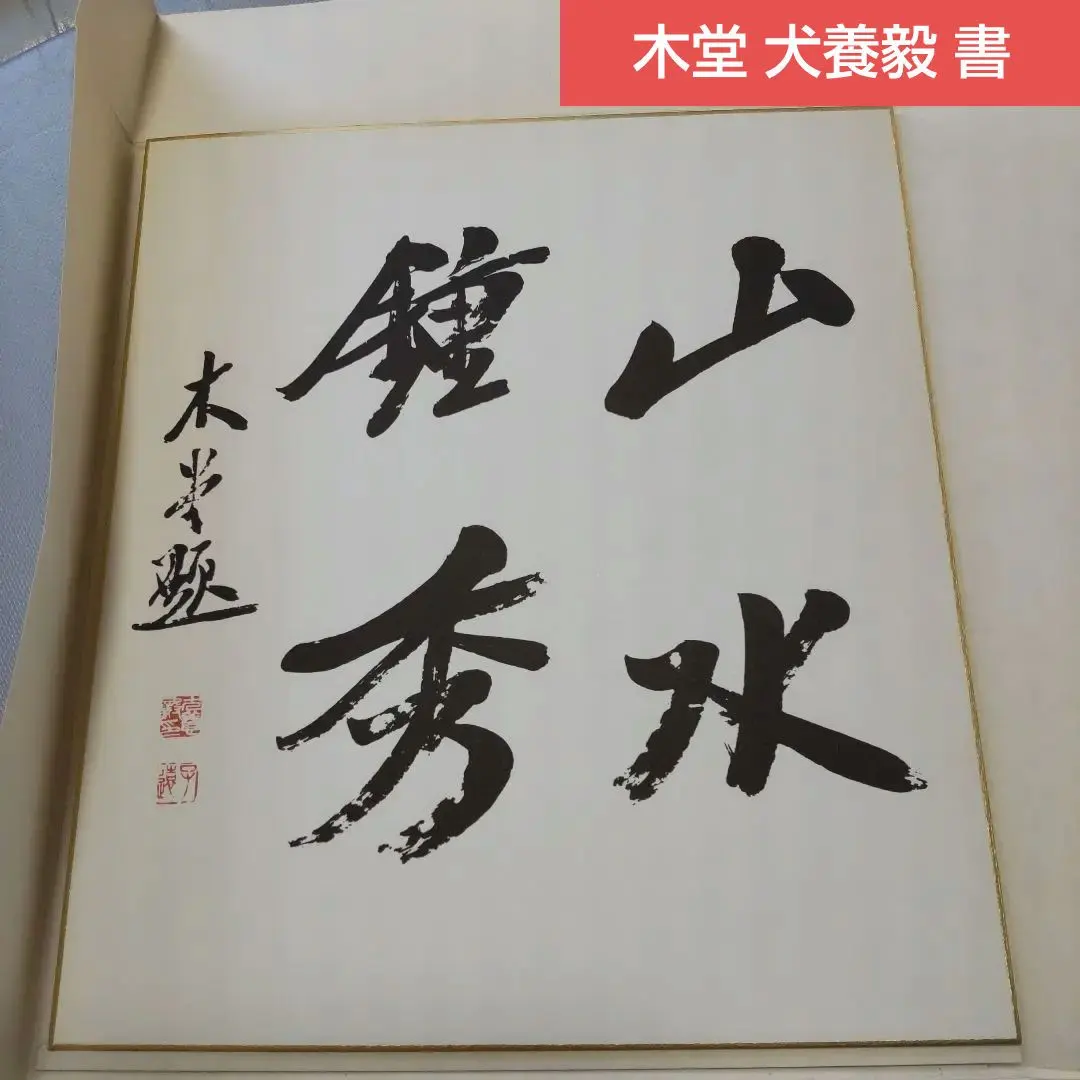 木堂 犬養毅 書
山水
鍾秀
木堂題